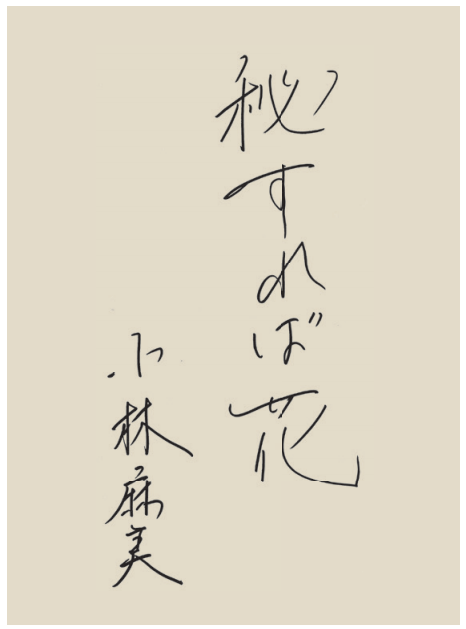 秘すれば花
小林麻美